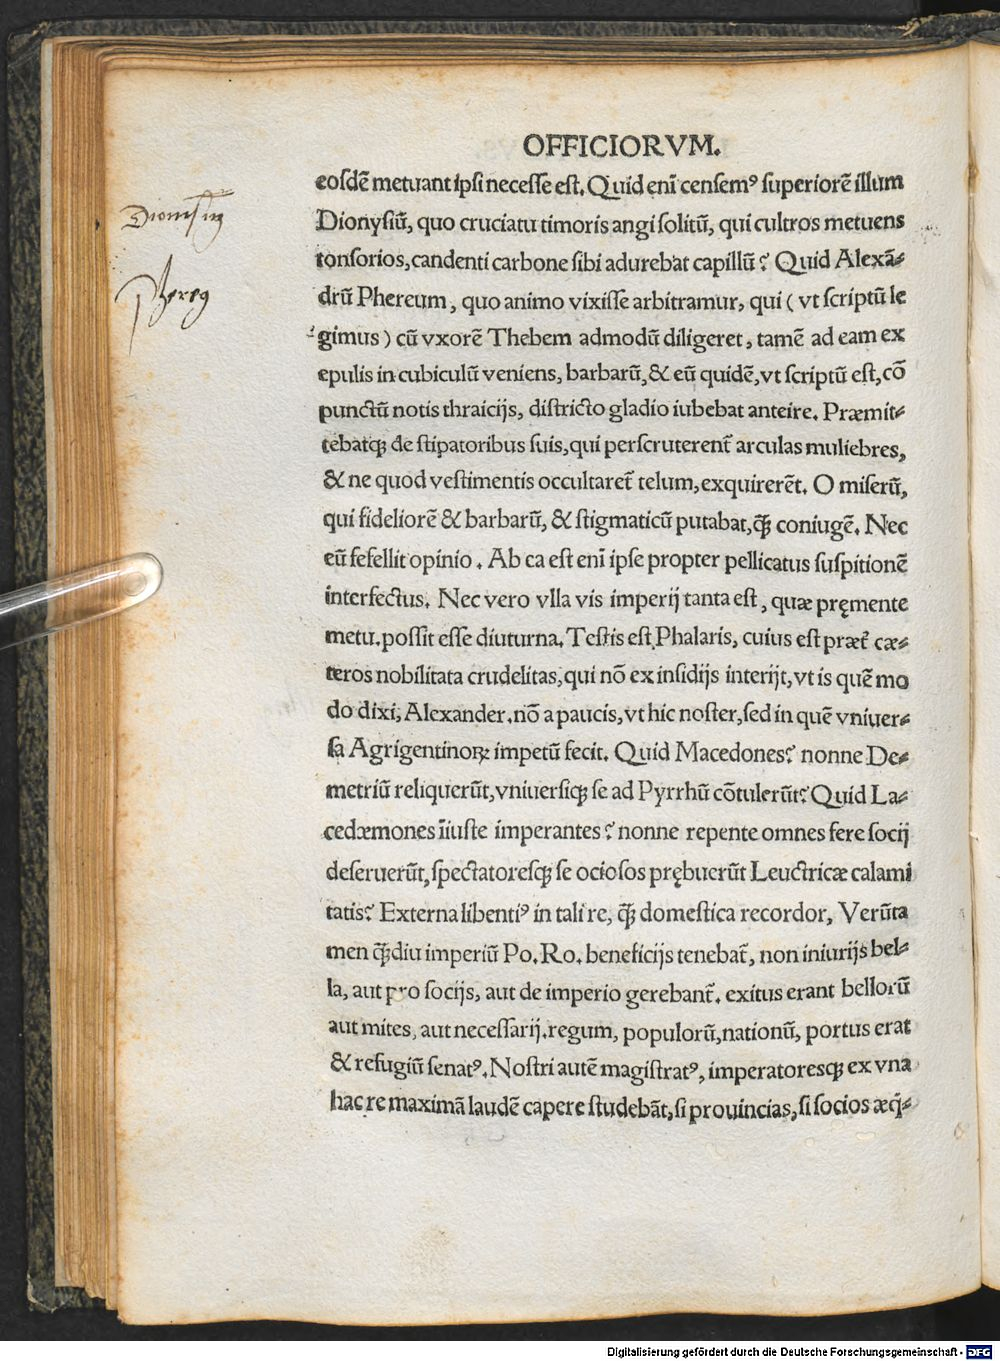 OFFICIORVM.
eosdē metuant ipsi necesse est. Quid enī censemꝰ superiorē illum
Dionysiū, quo cruciatu timoris angi solitū, qui cultros metuens
tonsorios, candenti carbone sibi adurebat capillū? Quid Alexā⸗
drū Phereum, quo animo vixisse arbitramur, qui (vt scriptū le
gimus) cū vxorē Thebem admodū diligeret, tamē ad eam ex
epulis in cubiculū veniens, barbarū, & eū quidē, vt scriptū est, cō
punctū notis thraicijs, districto gladio iubebat anteire. Præmit⸗
tebatqꝫ de stipatoribus suis, qui perscruterent̄ arculas muliebres,
& ne quod vestimentis occultaret̄ telum, exquirerēt. O miserū,
qui fideliorē & barbarū, & stigmaticū putabat, q̄ꝫ coniugē. Nec
eū fefellit opinio. Ab ea est enī ipse propter pellicatus suspitionē
interfectus. Nec vero vlla vis imperij tanta est, quæ pręmente
metu. possit esse diuturna. Testis est Phalaris, cuius est præt̄ cæ⸗
teros nobilitata crudelitas, qui nō ex insidijs interijt, vt is quē mo
do dixi, Alexander. nō a paucis, vt hic noster, sed in quē vniuer⸗
sa Agrigentinoꝝ impetū fecit. Quid Macedones? nonne De⸗
metriū reliquerūt, vniuersiqꝫ se ad Pyrrhū cōtulerūt? Quid La⸗
cedæmones īiuste imperantes? nonne repente omnes fere socij
deseruerūt, spectatoresqꝫ se ociosos prębuerūt Leuctricæ calami
tatis? Externa libentiꝰ in tali re, q̄ꝫ domestica recordor, Verūta
men q̄ꝫdiu imperiū Po. Ro. beneficijs tenebat̄, non iniurijs bel⸗
la, aut pro socijs, aut de imperio gerebant̄. exitus erant bellorū
aut mites, aut necessarij. regum, populorū, nationū, portus erat
& refugiū senatꝰ. Nostri autē magistratꝰ, imperatoresqꝫ ex vna
hac re maximā laudē capere studebāt, si prouincias, si socios æq̄⸗
Dionysius
Phereus
Digitalisierung gefördert durch die Deutsche Forschungsgemeinschaft - DFG